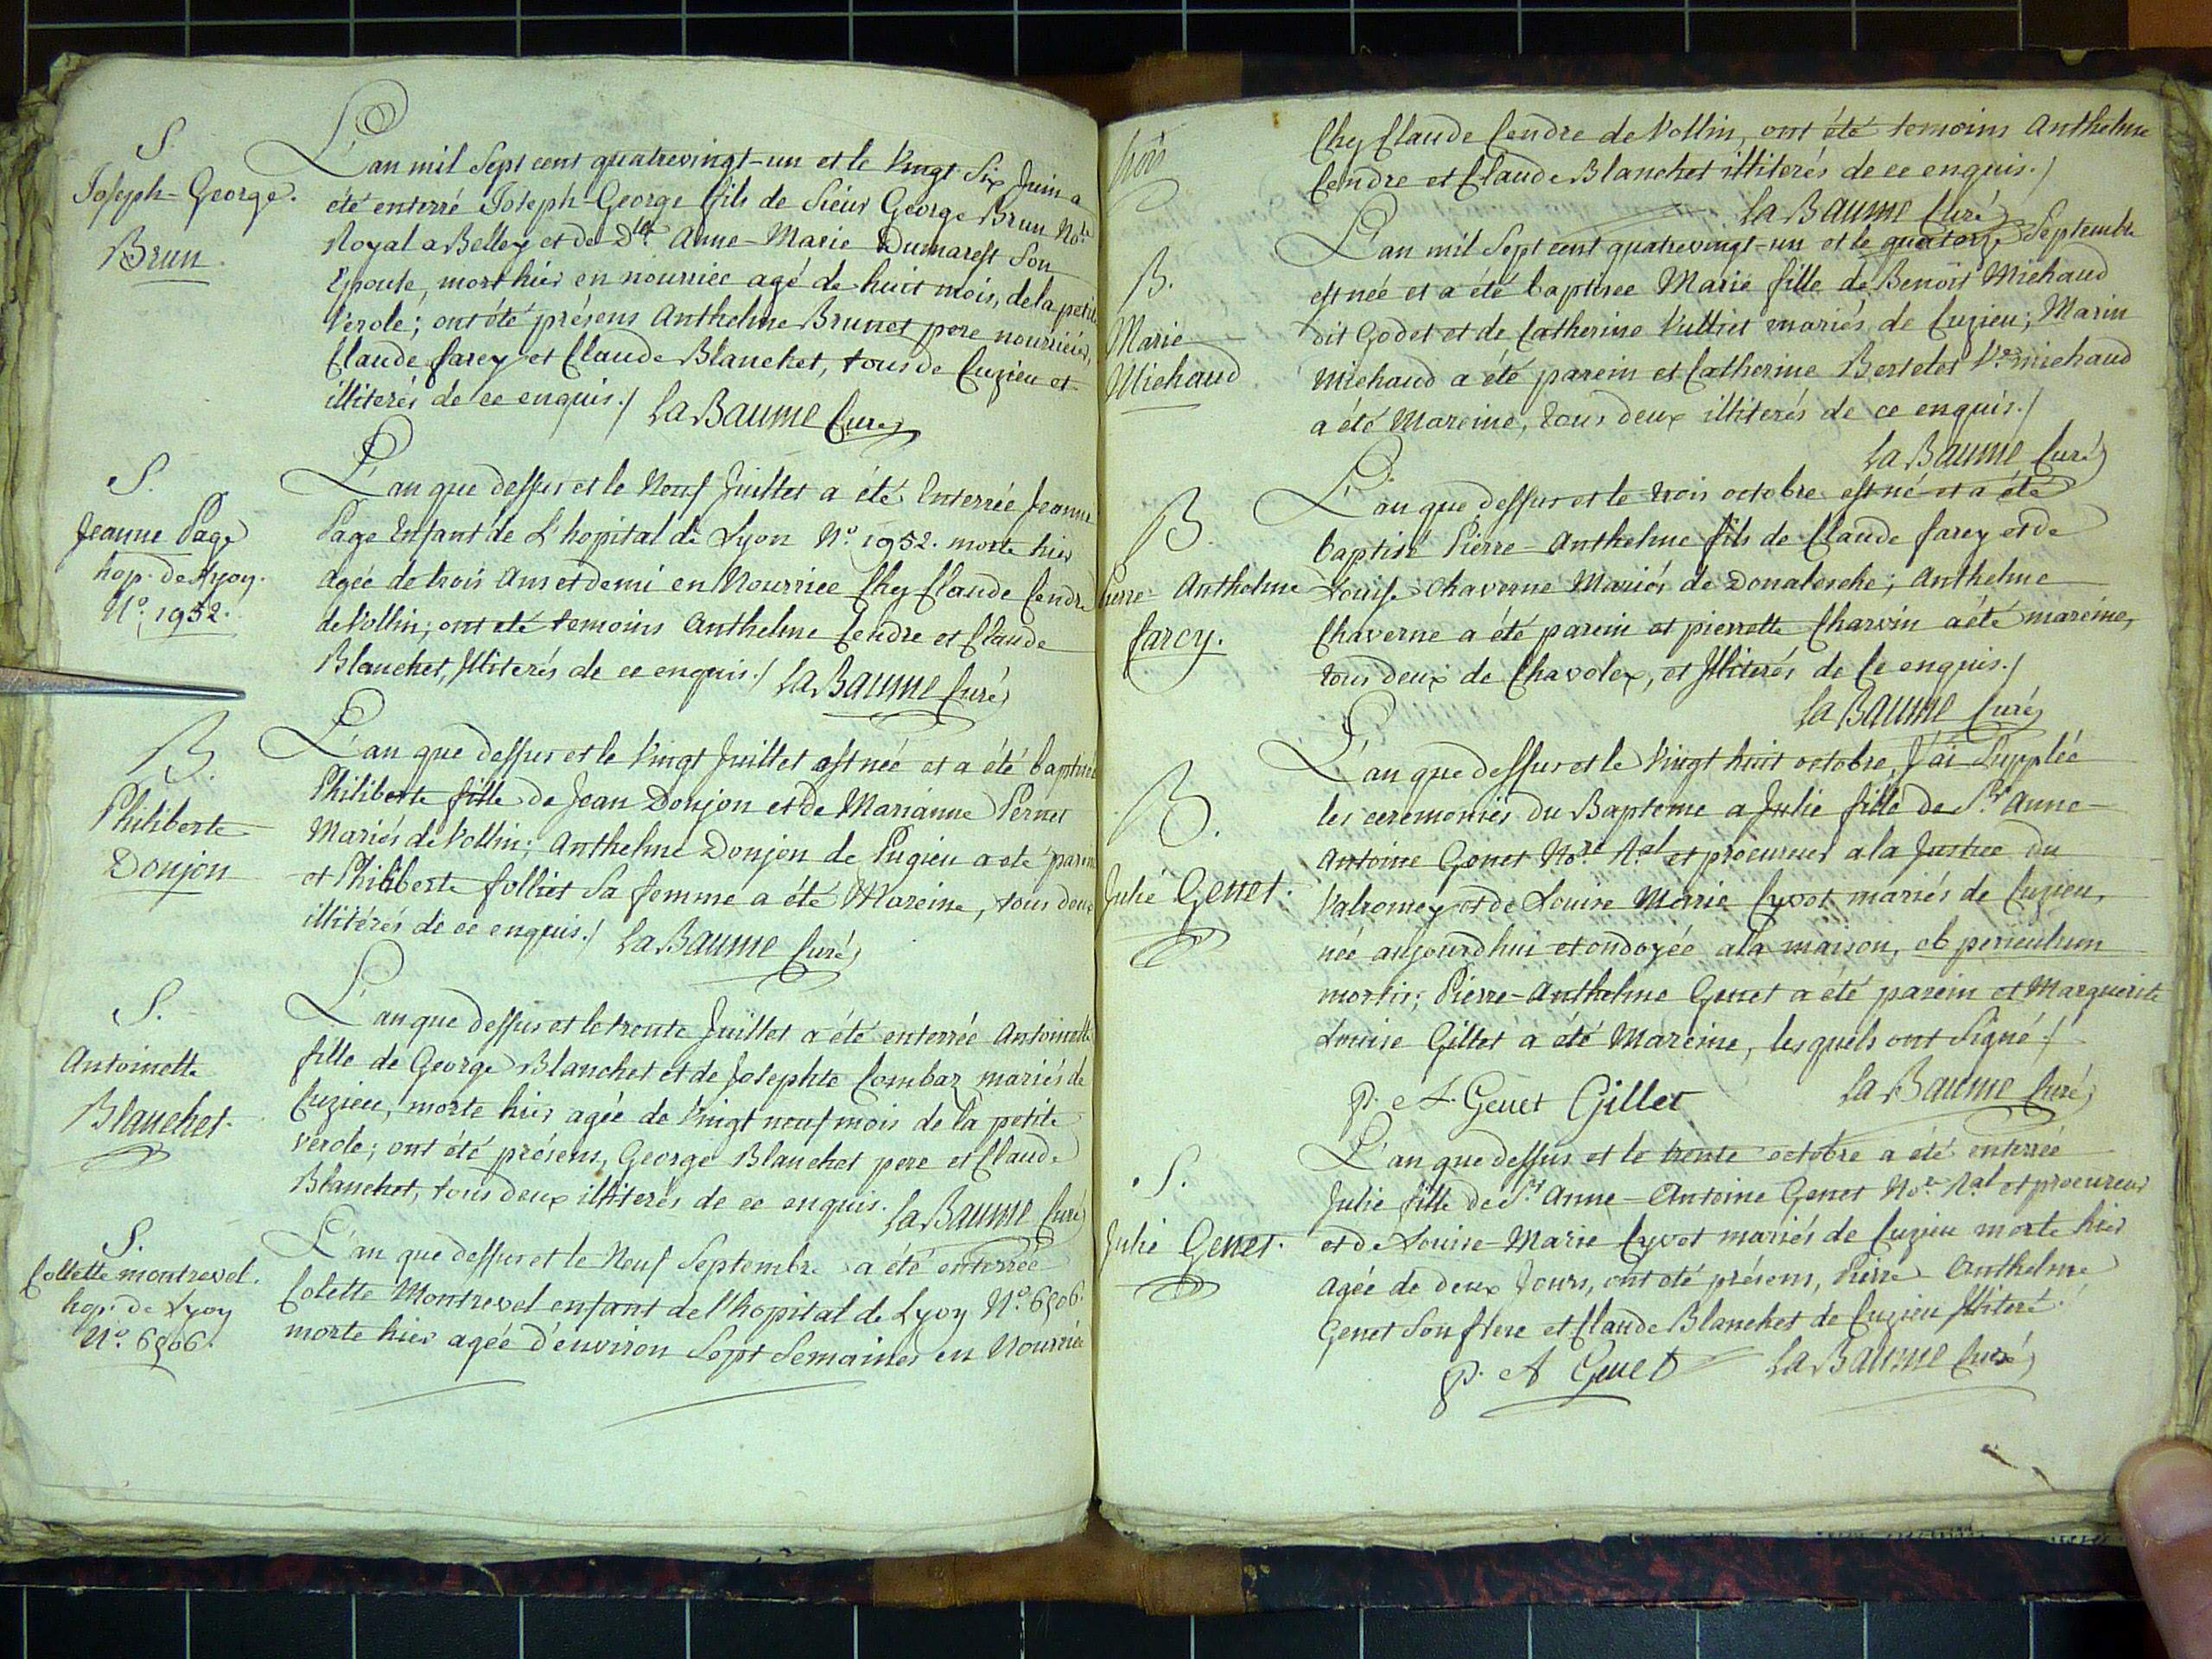 S.
Joseph-George.
Brun.
L'an mil Sept cent quatrevingt-un et le Vingt Six Juin a
été enterré Joseph-George fils de Sieur George Brun No.re
Royal a Belley et de D.lle Anne-Marie Dumarest Son
Epouse, mort hier en nourrice agé de huit mois, de la petite
Verole; ont été présens Anthelme Brunet pere nourricier,
Claude farcy et Claude Blanchet, tous de Cuzieu et
illiterés de ce enquis./ La Baume Curé
S.
Jeanne Page
hop. de Lyon.
N.o 1952.
L'an que dessus et le Neuf Juillet a été Enterrée Jeanne
Page Enfant de L'hopital de Lyon N.o 1952. morte hier
agée de trois Ans et demi en Nourrice Chez Claude Cendre
de Vollin; ont eté temoins Anthelme Cendre et Claude
Blanchet, Illiterés de ce enquis./ La Baume Curé
B.
Philiberte
Donjon
L'an que dessus et le Vingt Juillet est née et a été baptisée
Philiberte fille de Jean Donjon et de Marianne Pernet
Mariés de Vollin; Anthelme Donjon de Pugieu a eté parein
et Philiberte folliet Sa femme a été Mareine, tous deux
illitérés de ce enquis./ La Baume Curé
S.
Antoinette
Blanchet.
L'an que dessus et le trente Juillet a été enterrée Antoinette
fille de George Blanchet et de Josephte Combaz mariés de
Cuzieu, morte hier agée de Vingt neuf mois de la petite
verole; ont été présens, George Blanchet pere et Claude
Blanchet, tous deux illiterés de ce enquis. La Baume Curé
S.
Collette montrevel.
hop. de Lyon
N.o 6906.
L'an que dessus et le Neuf Septembre a été enterrée
Colette Montrevel enfant de l'hopital de Lyon N.o 6906.
morte hier agée d'environ Sept Semaines en Nourrice
Chez Claude Cendre de Vollin, ont été temoins Anthelme
Cendre et Claude Blanchet illiterés de ce enquis./
La Baume Curé
B.
Marie
Michaud
L'an mil Sept cent quatrevingt-un et le quatorze Septembre
est née et a été baptisee Marie fille de Benoît Michaud
dit Godet et de Catherine Vulliet mariés de Cuzieu; Marin
Michaud a été parein et Catherine Bertelet V.e michaud
a été Mareine, tous deux illiterés de ce enquis./
La Baume Curé
B.
Pierre Anthelme
farcy.
L'an que dessus et le trois octobre est né et a été
baptisé Pierre-Anthelme fils de Claude farcy et de
Louise Chaverne Mariés de Donalesche; Anthelme
Chaverne a été parein et pierrette Charvin a été mareine,
tous deux de Chavolex, et Illiterés de Ce enquis./
La Baume Curé
B.
Julie Genet.
L'an que dessus et le Vingt huit octobre, J'ai Supplée
les ceremonies du Bapteme a Julie fille de S.r Anne-
Antoine Genet No.re R.al et procureur a la Justice du
Valromey et de Louise Marie Cyvot mariés de Cuzieu,
née aujourdhui et ondoyée a la maison, ob periculum
mortis; Pierre-Anthelme Genet a été parein et Marguerite
Louise Gillet a été Mareine, lesquels ont Signé./
P. A. Genet Gillet La Baume Curé
S.
Julie Genet.
L'an que dessus et le trente octobre a été enterrée
Julie fille de S.r Anne-Antoine Genet No.re R.al et procureur
et de Louise-Marie Cyvot mariés de Cuzieu morte hier
agée de deux Jours, ont eté présens, Pierre Anthelme
Genet Son frere et Claude Blanchet de Cuzieu Illiteré./
P. A Genet La Baume Curé